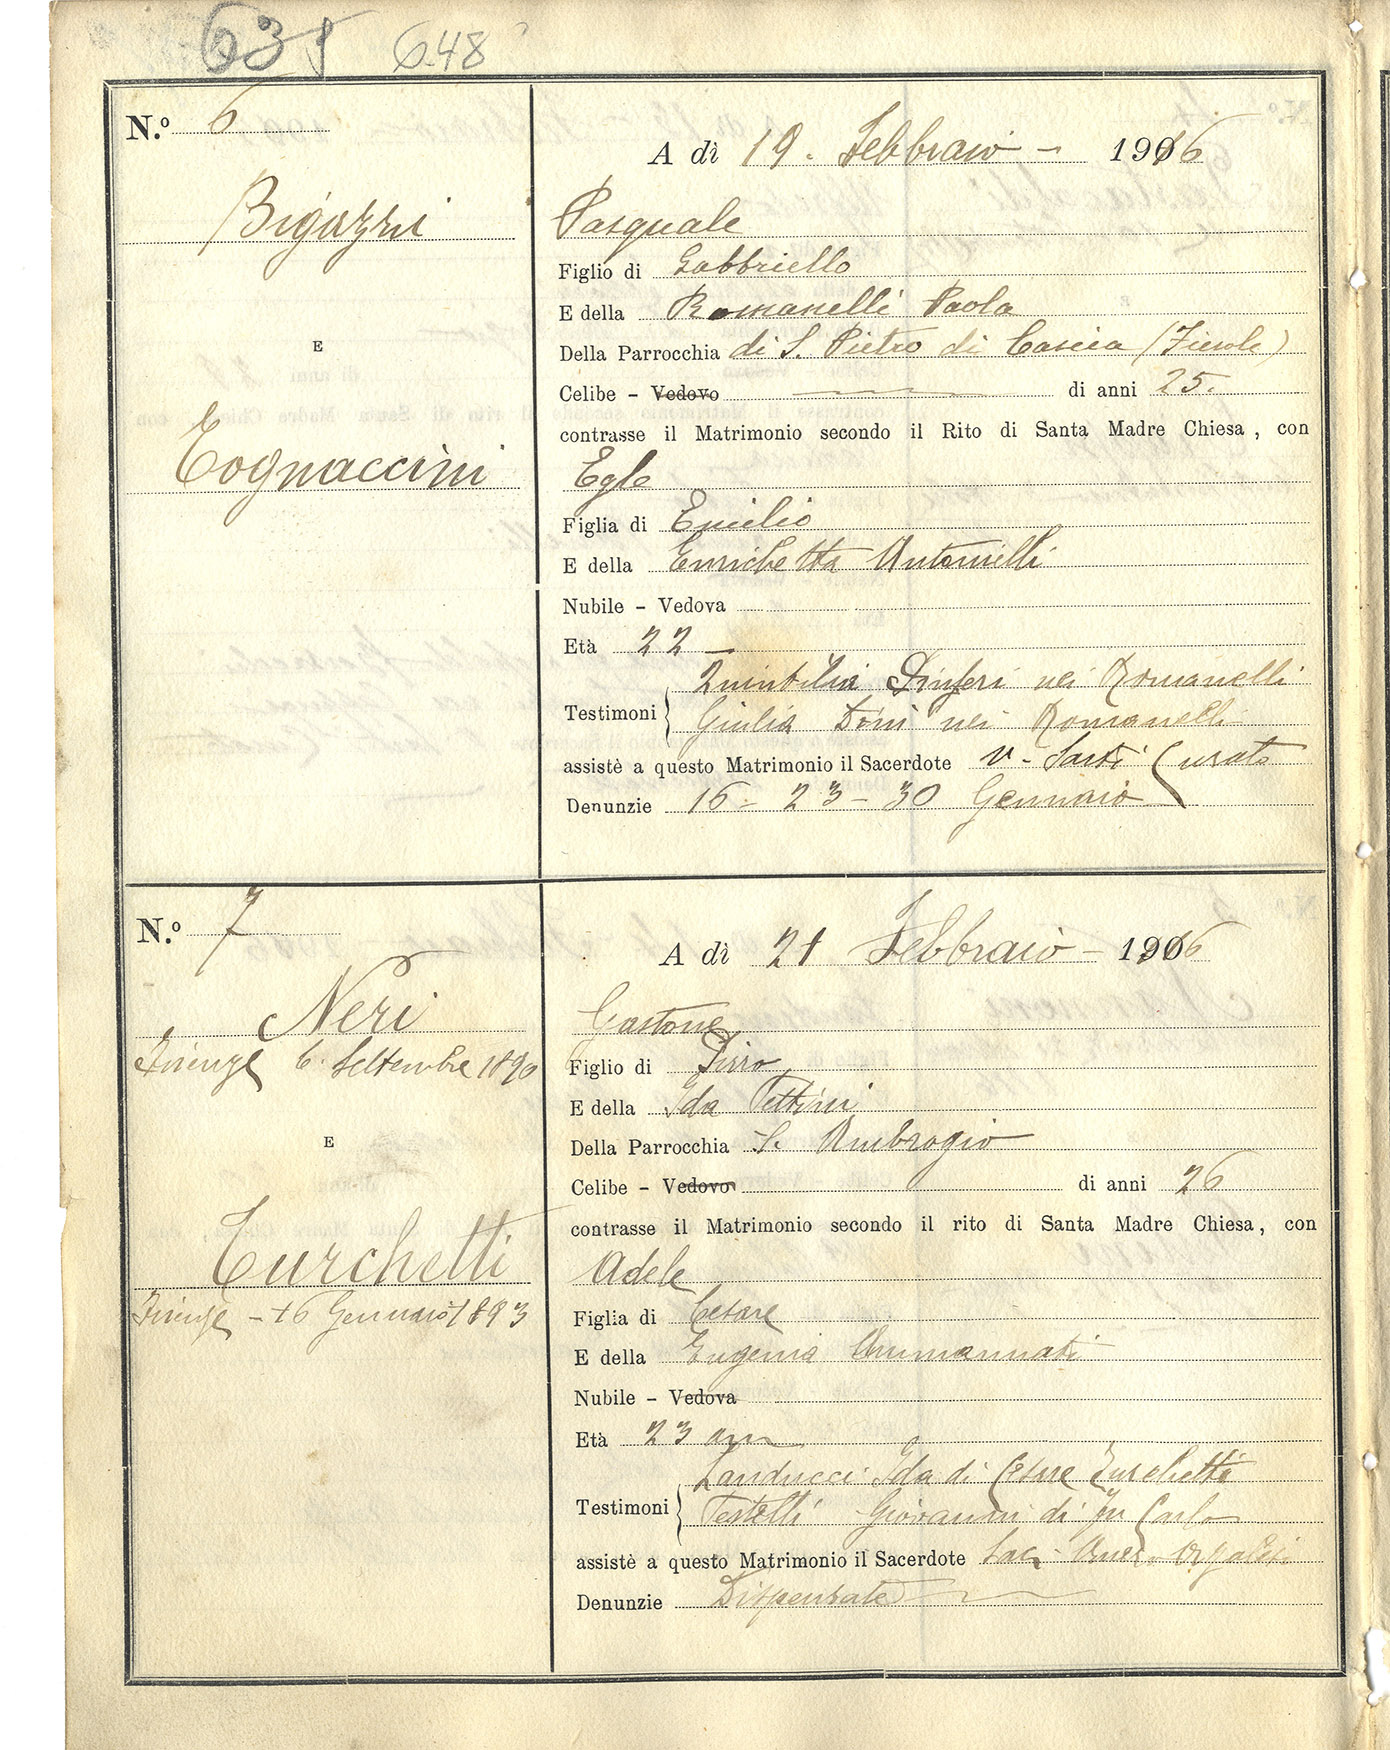 635 648
N.º 6
A dì 19. Febbraio - 1916
Bigazzi
Pasquale
Figlio di Gabbriello
E della Romanelli Paola
E
Della Parrocchia di S. Pietro di Cascia (Fiesole)
Celibe - Vedovo di anni 25.
contrasse il Matrimonio secondo il Rito di Santa Madre Chiesa, con
Cognaccini
Egle
Figlia di Emilio
E della Enrichetta Antonielli
Nubile - Vedova
Età 22 -
Quintilia nei Romanelli
Testimoni
Giulia Doni nei Romanelli
assistè a questo Matrimonio il Sacerdote V. Sarti Curato
Denunzie 16 - 23 - 30 Gennaio
N.º 7
A dì 21 Febbraio - 1916
Neri
Gastone
Firenze 6 Settembre 1890
Figlio di Pirro
E della Ida Pettini
E
Della Parrocchia S. Ambrogio
Celibe - Vedovo di anni 26
contrasse il Matrimonio secondo il rito di Santa Madre Chiesa, con
Turchetti
Adele
Firenze - 16 Gennaio 1893
Figlia di Cesare
E della Eugenia Ammannati
Nubile - Vedova
Età 23 ann
Landucci Ida di Cesare Turchetti
Testimoni
Testelli Giovanni di fu Carlo
assistè a questo Matrimonio il Sacerdote Sac.
Denunzie Dispensate